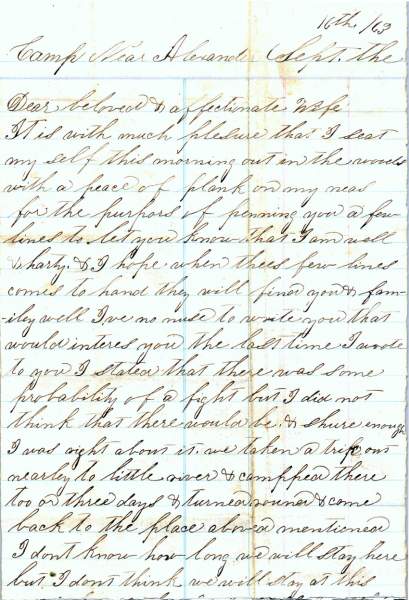 16th /63
Camp Near Alexander Sept. the
Dear beloved & affectionate Wife
It is with much plesure that I seat
my self this morning out in the woods
with a peace of plank on my neas
for the purpors of penning you a few
lines to let you know that I am well
& harty. & I hope when thees few lines
comes to hand they will find you & fam-
iley well I,ve no nuse to write you that
would interes you the last time I wrote
to you I stated that there was some
probability of a fight but I did not
think that there would be. & shure enough
I was right about it. we taken a trip out
nearley to little river & campped there
too or three days & turned round & come
back to the place above mentioned
I dont know how long we will stay here
but I dont think we will stay at this